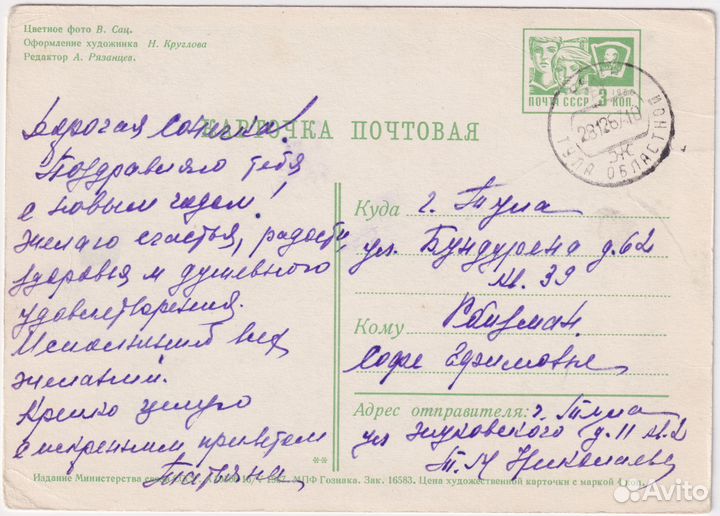 Цветное фото В. Сац.
Оформление художника Н. Круглова
Редактор А. Рязанцев.
ПОЧТА СССР 3 КОП.
1966
28126710
ТУЛА ОБЛАСТ
КАРТОЧКА ПОЧТОВАЯ
Дорогая Сонечка!
Поздравляю тебя
с новым годом!
желаю счастья, радости,
здоровья и душевного
удовлетворения.
Исполнения всех
желаний.
Крепко целую
с искренним приветом
Татьяна
Куда г. Тула
ул. Бундурена д. 62
кв. 39
Кому
Софе Ефимовне
Адрес отправителя: г. Тула
ул Жуковского д. 11 кв. 2
Т. М Николаева
**
Издание Министерства 1967. МПФ Гознака. Зак. 16583. Цена художественной карточки с маркой 4 коп.
Avito